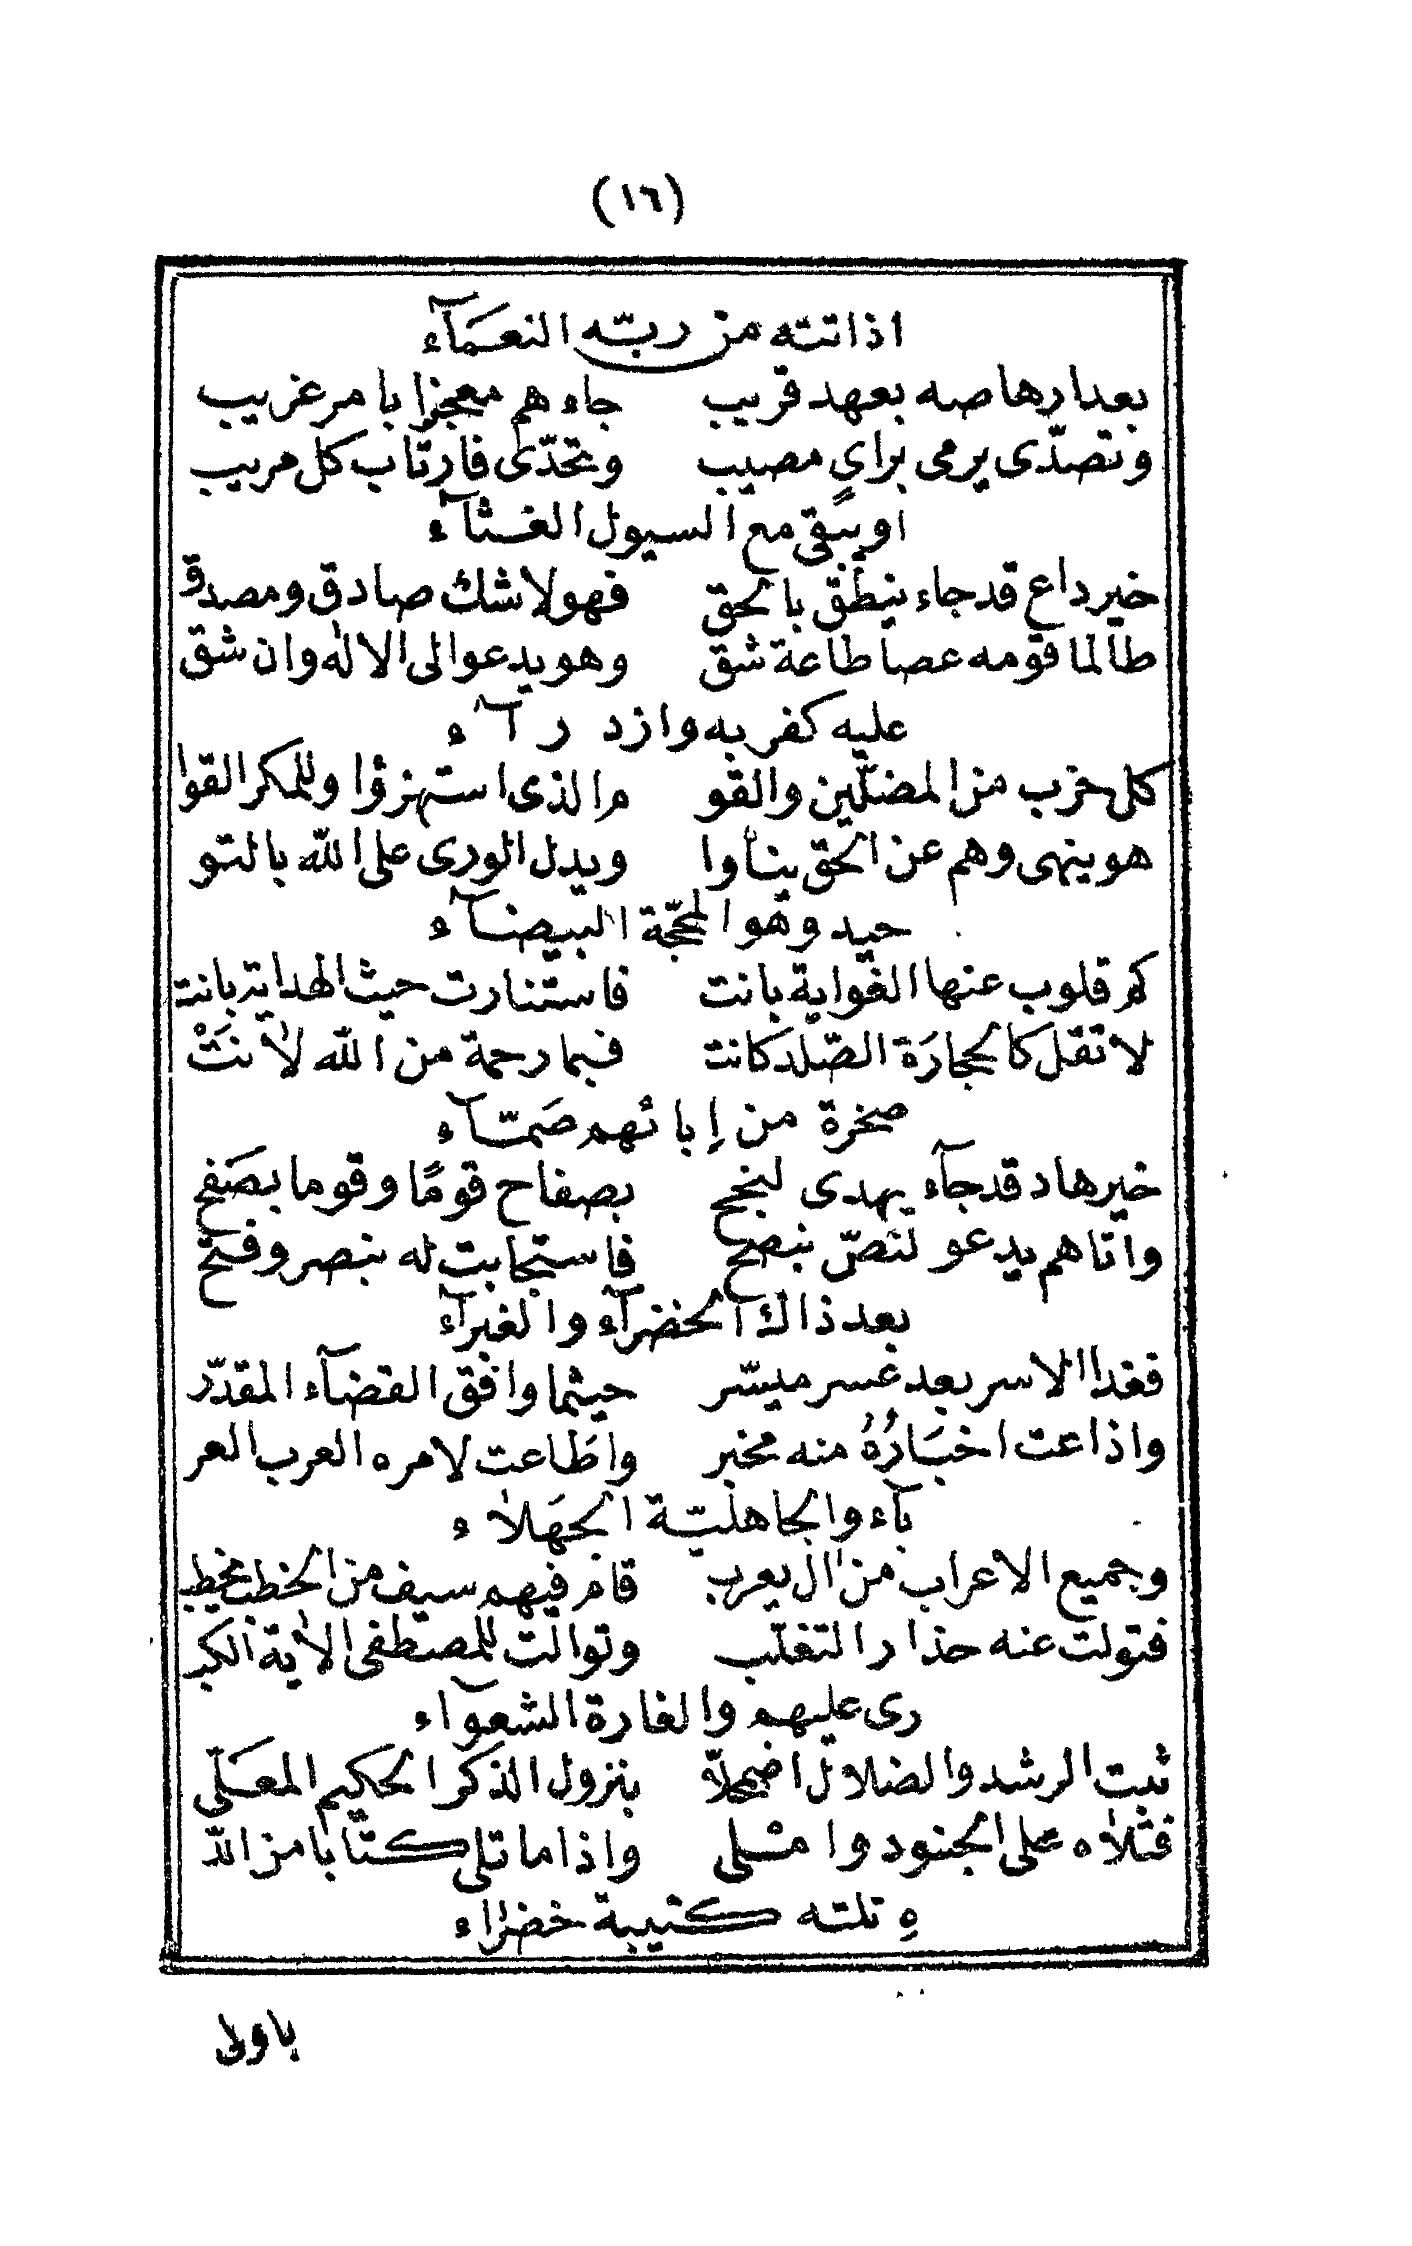 (١٦)
اذ اتته من ربّه النعمآء
بعد ارهاصه بعهد قريب جاءهم معجزا بامر غريب
وتصدّى يرمى براي مصيب وتحدّى فارتاب كل مريب
اويبقى مع السيول الغثآء
خير داع قد جاء ينطق بالحق فهو لا شك صادق ومصدق
طالما قومه عصا طاعة شق وهو يدعو الى الاله وان شق
عليه كفر به وازدرآء
كل حزب من المضلّين والقو م الذى استهزؤا وللمكر القوا
هو ينهى وهم عن الحق ينأوا ويدل الورى على الله بالتو
حيد وهو المحجّة البيضآء
كم قلوب عنها الغواية بانت فاستنارت حيث الهداية بانت
لا تقل كالحجارَة الصّلد كانت فبما رحمة من الله لاٰنَتْ
صخرة من إبائهم صَمّآء
خير هاد قد جآء يهدى لنجح بصفاح قومًا وقوما بصَفح
واتاهم يدعو لنصّ بنصح فاستجابت له بنصر وفتح
بعد ذاك الخضرآء والغبرآء
فغدا الاسر بعد عسر ميسّر حيثما وافق القضآء المقدّر
واذاعت اخبَارُهُ منه مخبر واطَاعت لامره العرب العر
بآء والجاهليّة الجهَلاٰء
وجميع الاعراب من اٰل يعرب قام فيهم سيف من الخطب مخطب
فتولت عنه حذار التغلّب وتوالت للمصطفى الاٰية الكبر
رى عليهم والغارة الشعوآء
ثبت الرشد والضلال اضمحلاّ بنزول الذكر الحكيم المعَلّى
فتلاٰه على الجنود وامْلى واذا ما تلى كتابا من اللّ
هِ تلته كتيبة خضراء
باولى